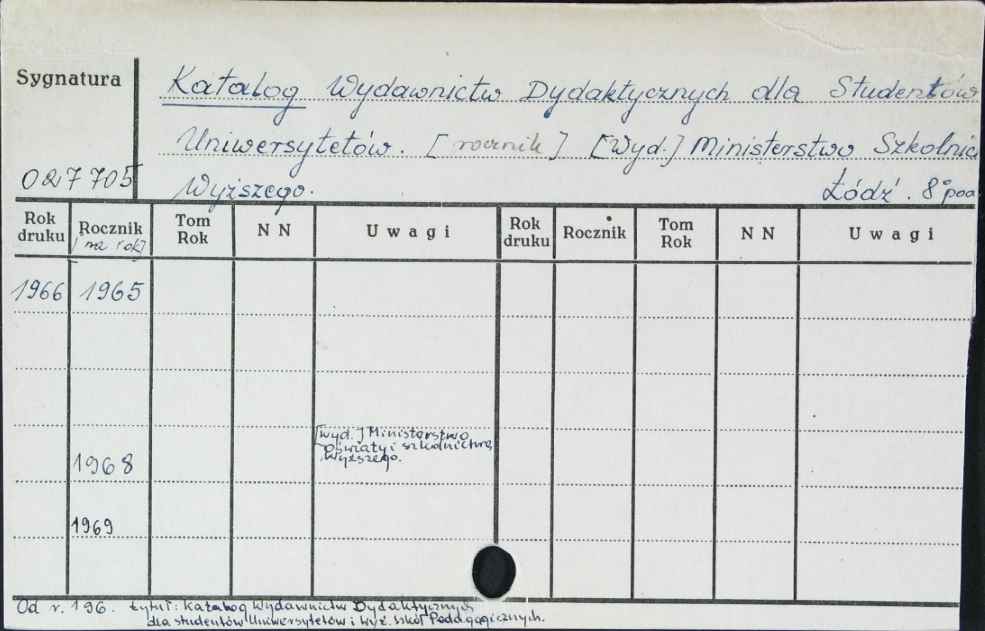 Sygnatura
Katalog Wydawnictw Dydaktycznych dla Studentów
Uniwersytetów. [rocznik] [Wyd.] Ministerstwo Szkolnic
027705 Wyższego. Łódź. 8° poa
Rok druku Rocznik [na rok] Tom Rok N N Uwagi Rok druku Rocznik Tom Rok N N Uwagi
1966 1965
[wyd.] Ministerstwo
oświaty i szkolnictwa
1968 Wyższego.
1969
Od r. 196. tytuł: Katalog Wydawnictw Dydaktycznych
dla studentów Uniwersytetów i Wyż. szkół Pedagogicznych.